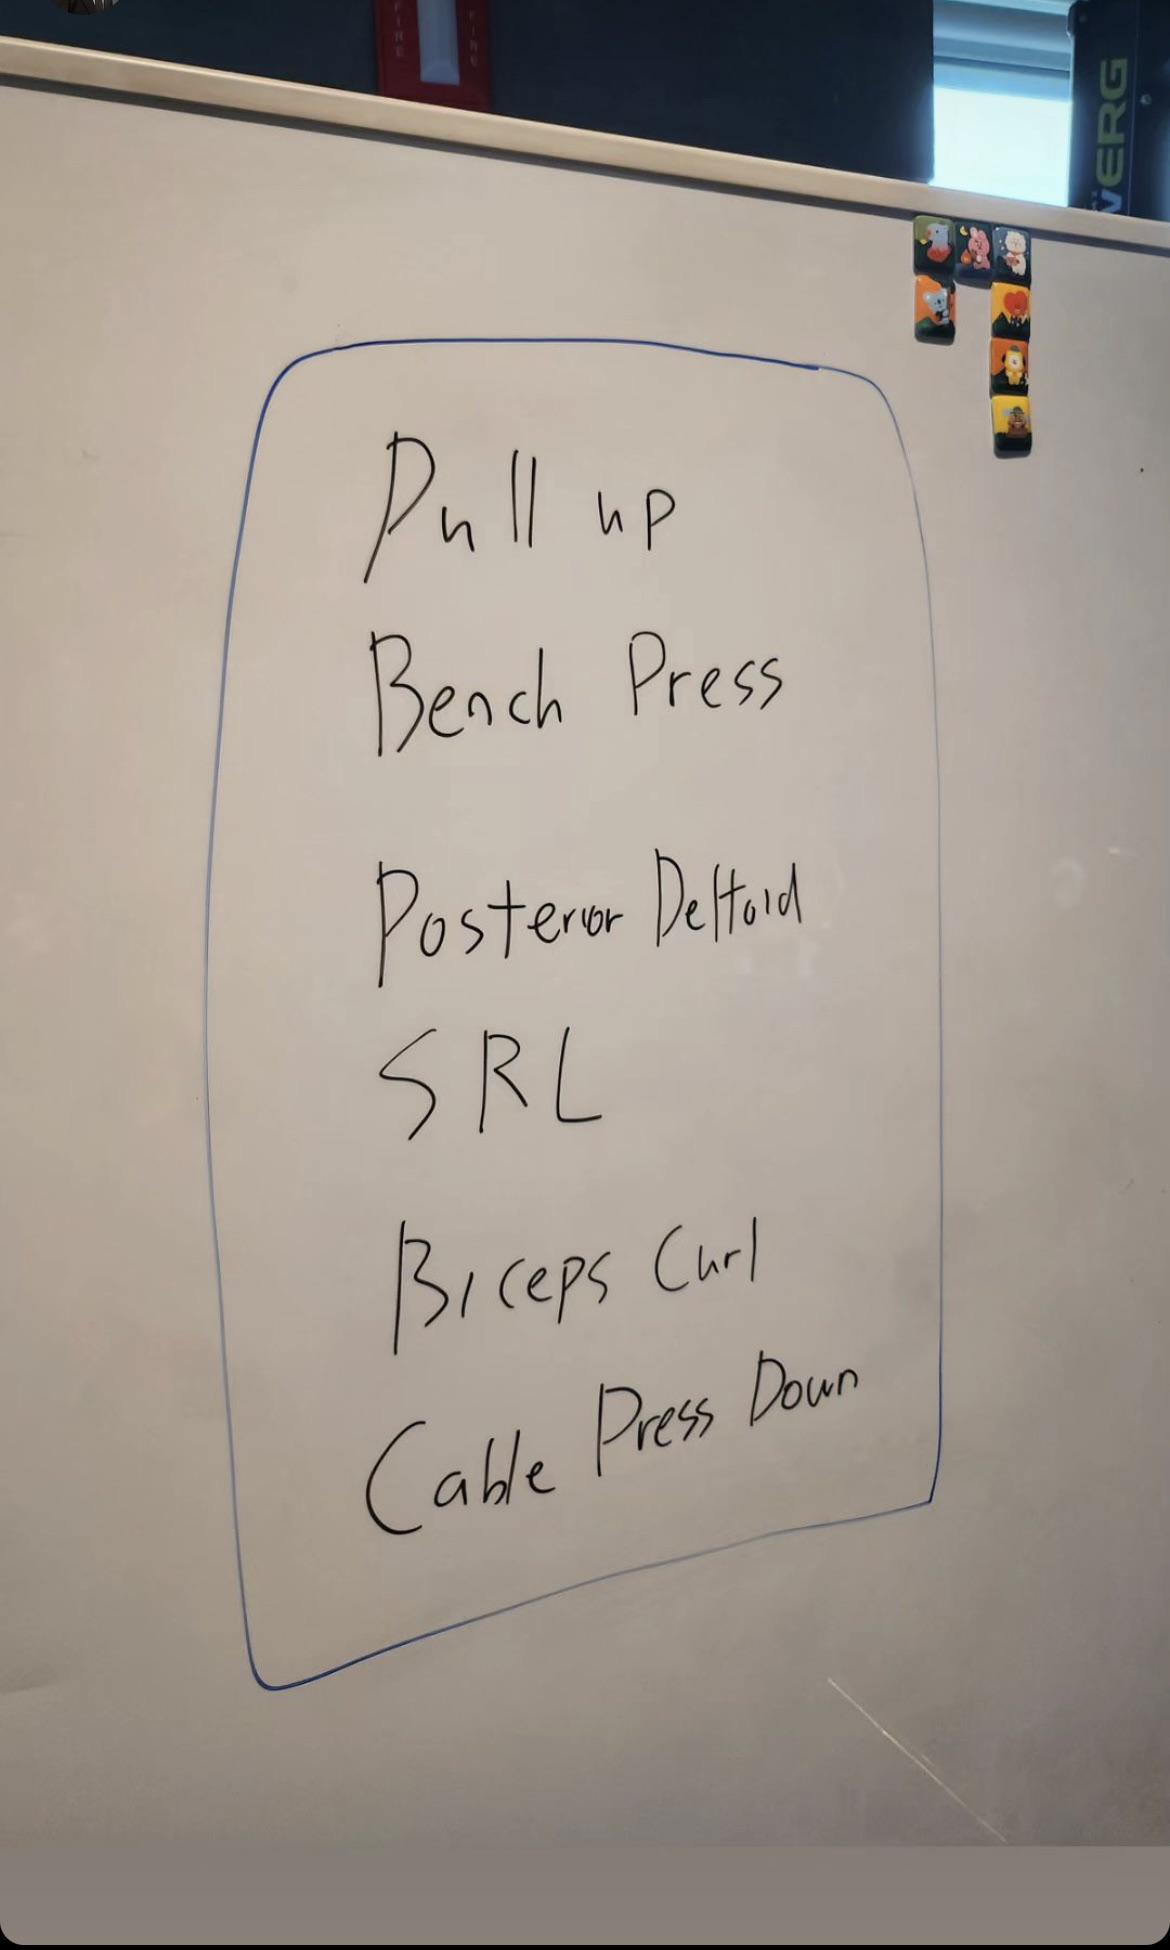 FIRE
FIRE
VERG
Pull up
Bench Press
Posterior Deltoid
SRL
Biceps Curl
Cable Press Down